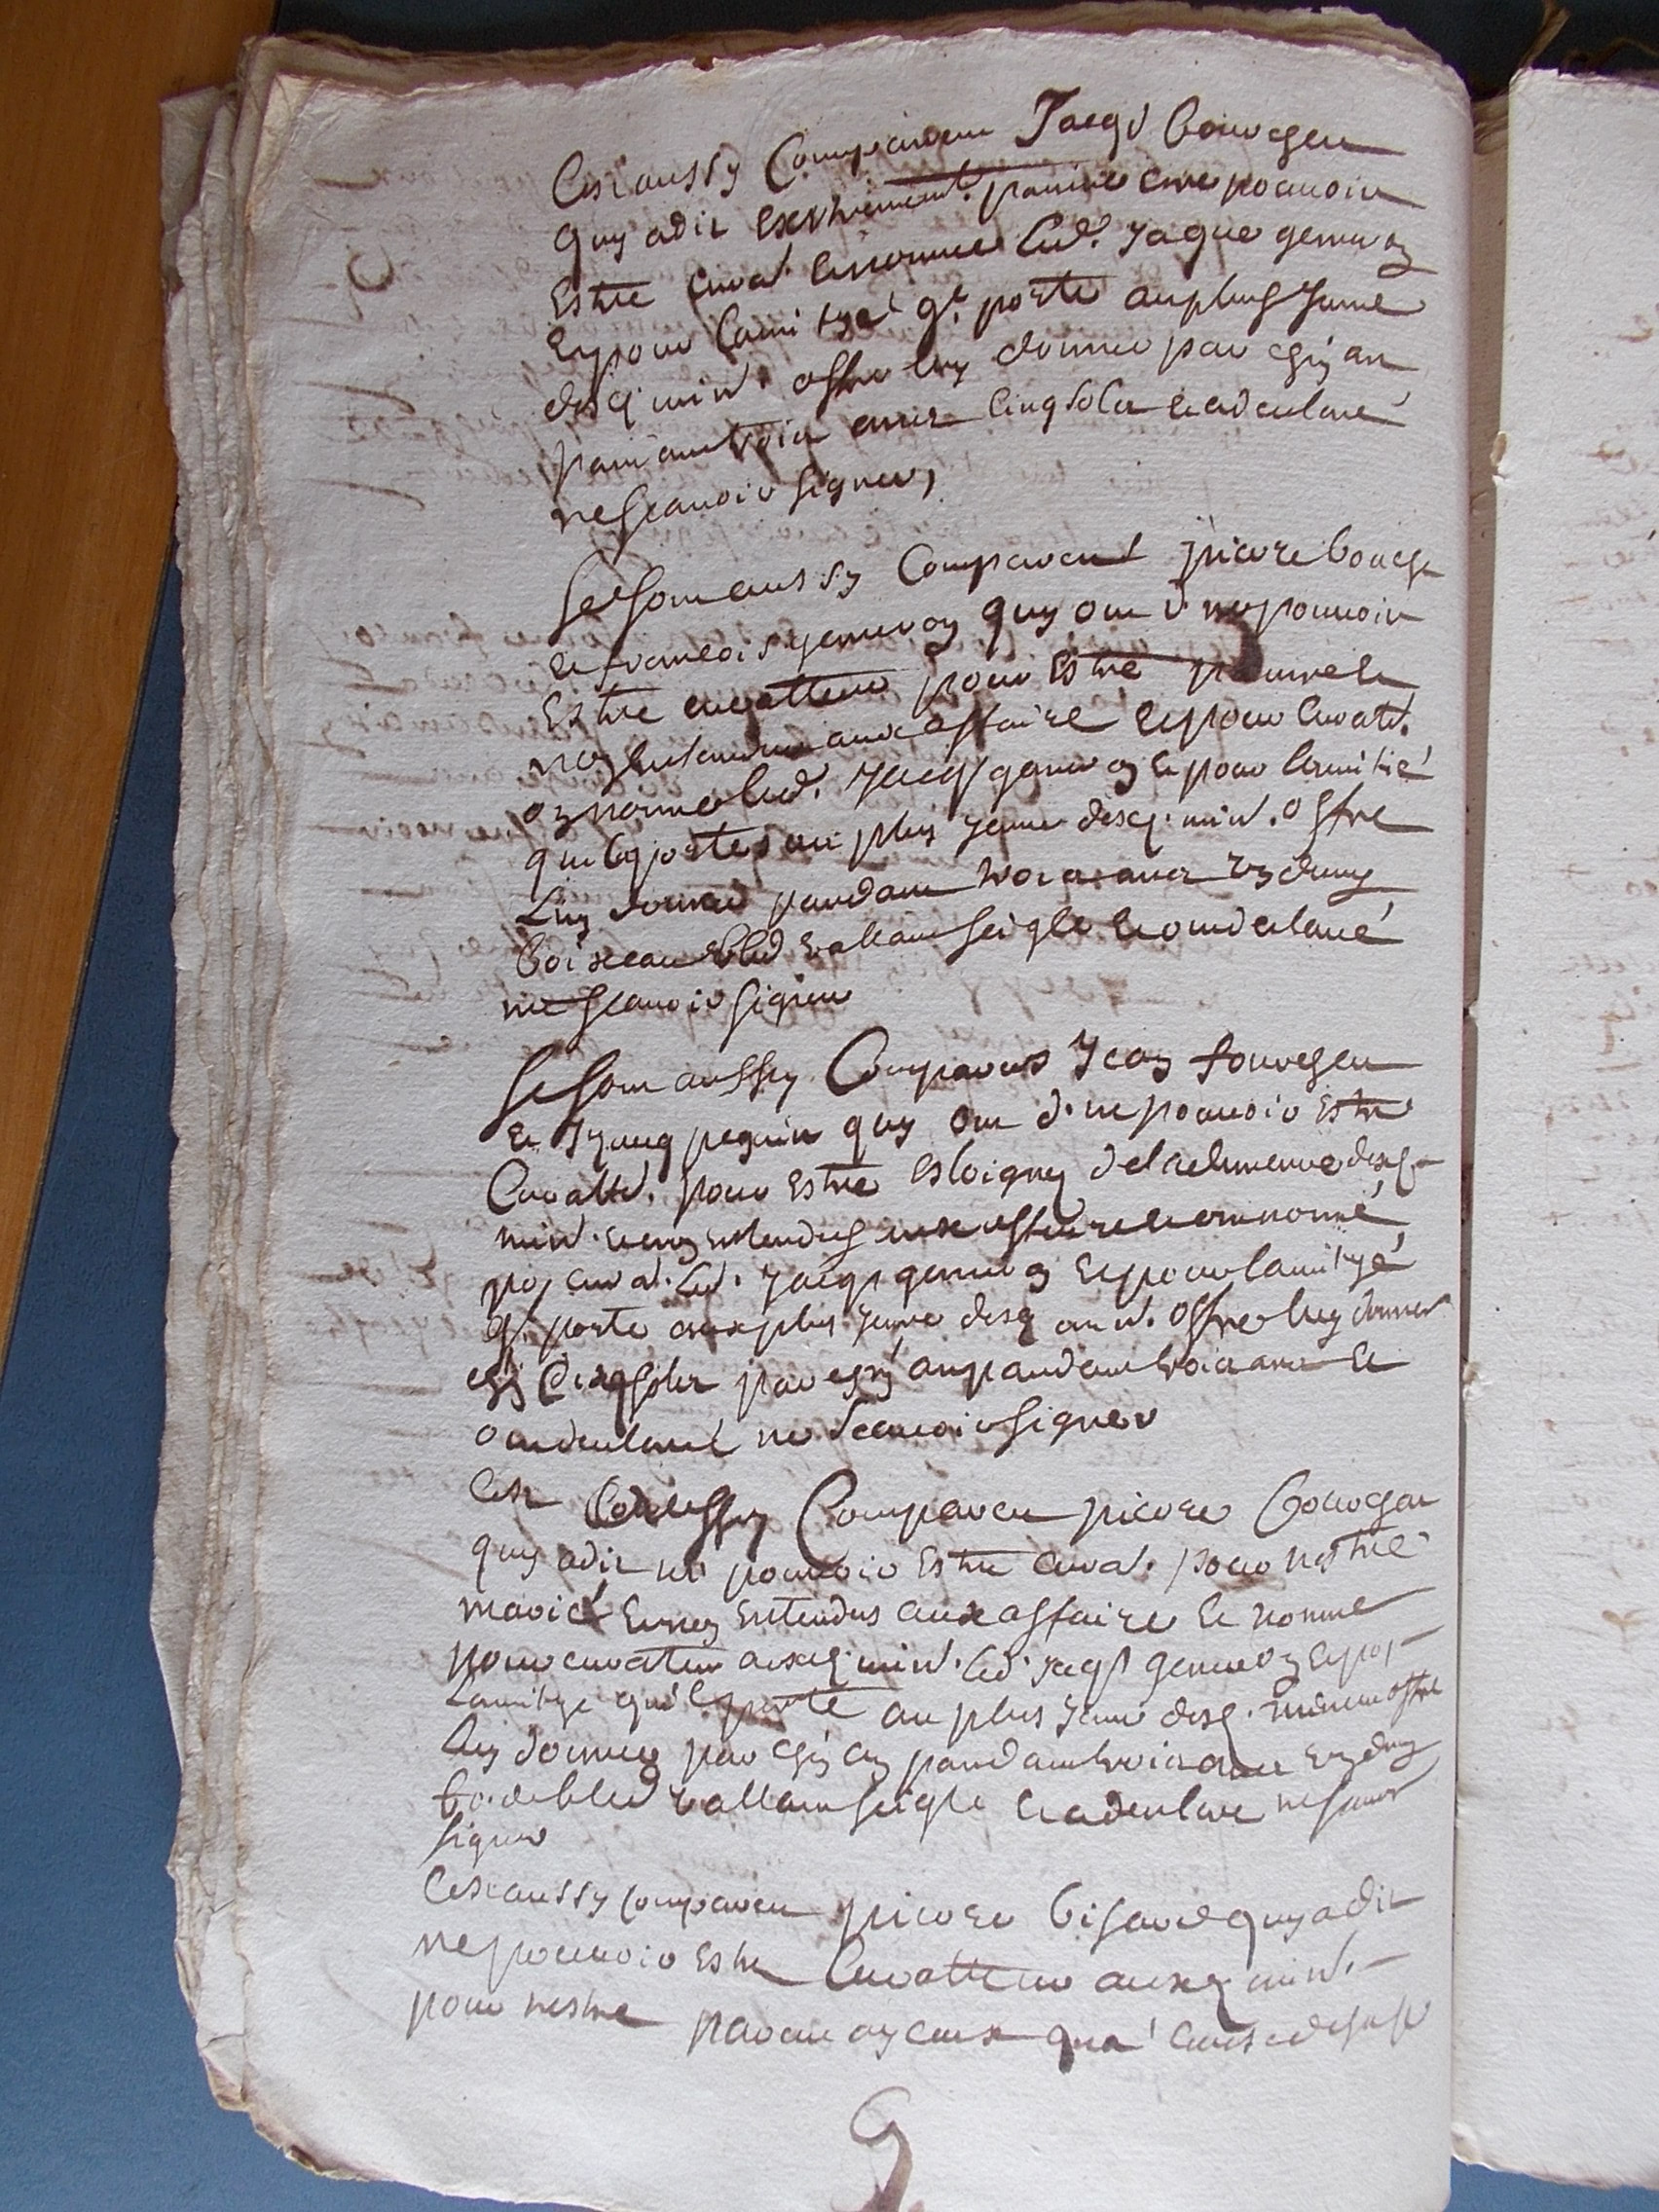 Est aussy Compareu Jacqs bourgeu
quy a dit estre pauvre ne pouvoir
Estre curat. et nomme led. Jaque genevoy
Et pour lamitye q'l porte au plus Jeune
desq. min. offre luy donner par chün an
pandant trois année cinq solz et a declaré
ne scavoir signer,
Se sont aussy Comparent pierre bourge
et francois genevoy quy ont d. ne pouvoir
Estre curatteur pour Estre pauvre et
non entendu aux affaire et pour curatt.
on nomme led. Jacqs genevoy et pour lamitié
quil portes au plus Jeune desq. min. offre
luy donner pandant trois année un demy
boisseau bled vallant seigle et ont declaré
ne scavoir signer
Se sont aussy Comparus Jean
et pegnin quy ont d. ne pouvoir Estre
Curatt. pour Estre Esloigney de la demeure desq.
min. et non entendus aux affaire et ont nomé
por curat. led. Jacqs genevoy et pour lamityé
q'l porte aux plus Jeune desq. min. offre luy donner
cinq solz par chün an pandant trois année et
ont declaré ne scavoir signer
Est aussy Compareu pierre bourgeu
quy a dit ne pouvoir Estre curat. pour nestre
marié et non entendus aux affaire et nomme
pour curateur ausq. min. led. Jacqs genevoy et por
lamitye qu'il porte au plus Jeune desq. mineur offre
luy donner par chün an pandant trois année un demy
bo. de bled vallant seigle et a declare ne scavoir
signer
Est aussy compareu pierre bisard quy a dit
ne pouvoir Estre Curatteur ausq. min.
pour nestre parant a eux qua cause de sa fe